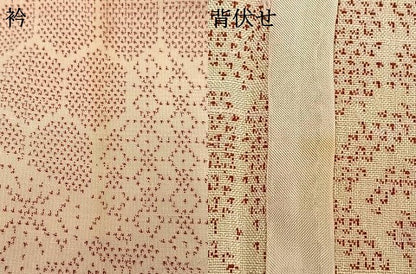 衿
背伏せ